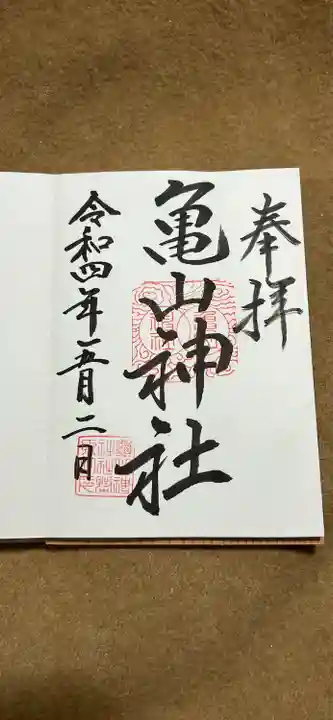 奉拝
亀山神社
令和四年五月二日